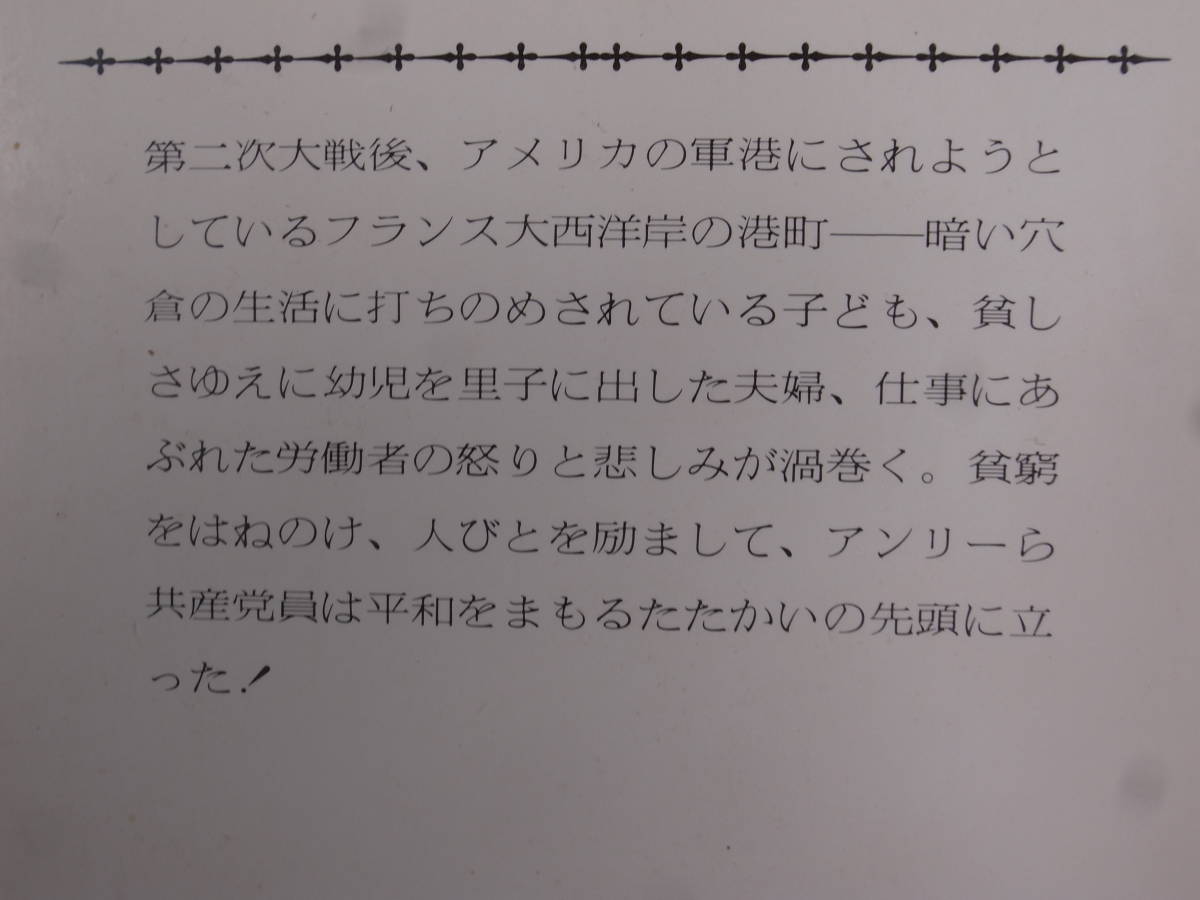 第二次大戦後、アメリカの軍港にされようと
しているフランス大西洋岸の港町――暗い穴
倉の生活に打ちのめされている子ども、貧し
さゆえに幼児を里子に出した夫婦、仕事にあ
ぶれた労働者の怒りと悲しみが渦巻く。貧窮
をはねのけ、人びとを励まして、アンリーら
共産党員は平和をまもるたたかいの先頭に立
った！